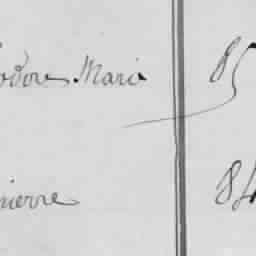 odore Marie 85
pierre 84